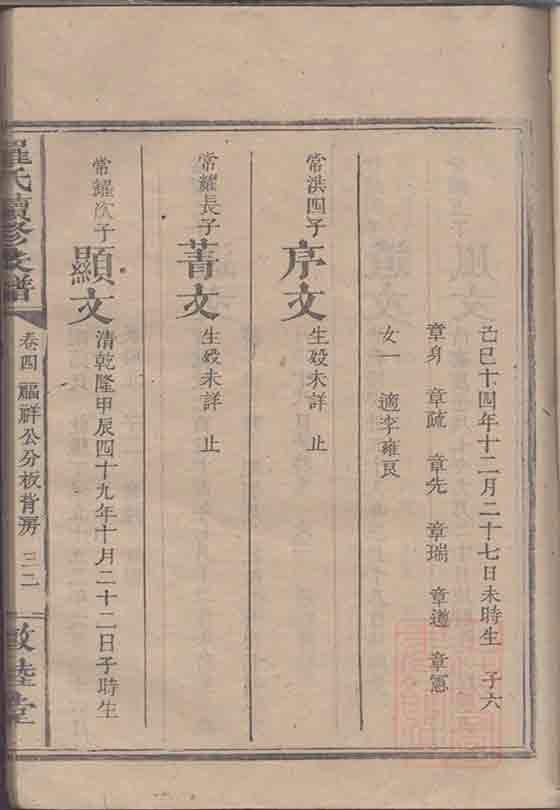 己巳十四年十二月二十七日未時生 子六
章身 章疏 章先 章瑞 章遵 章憲
女一 適李雍良
常洪四子 序文 生歿未詳 止
常耀長子 菁文 生歿未詳 止
常耀次子 顯文 清乾隆甲辰四十九年十月二十二日子時生
羅氏續修支譜 卷四 福祥公分板背房 三二 敦陸堂